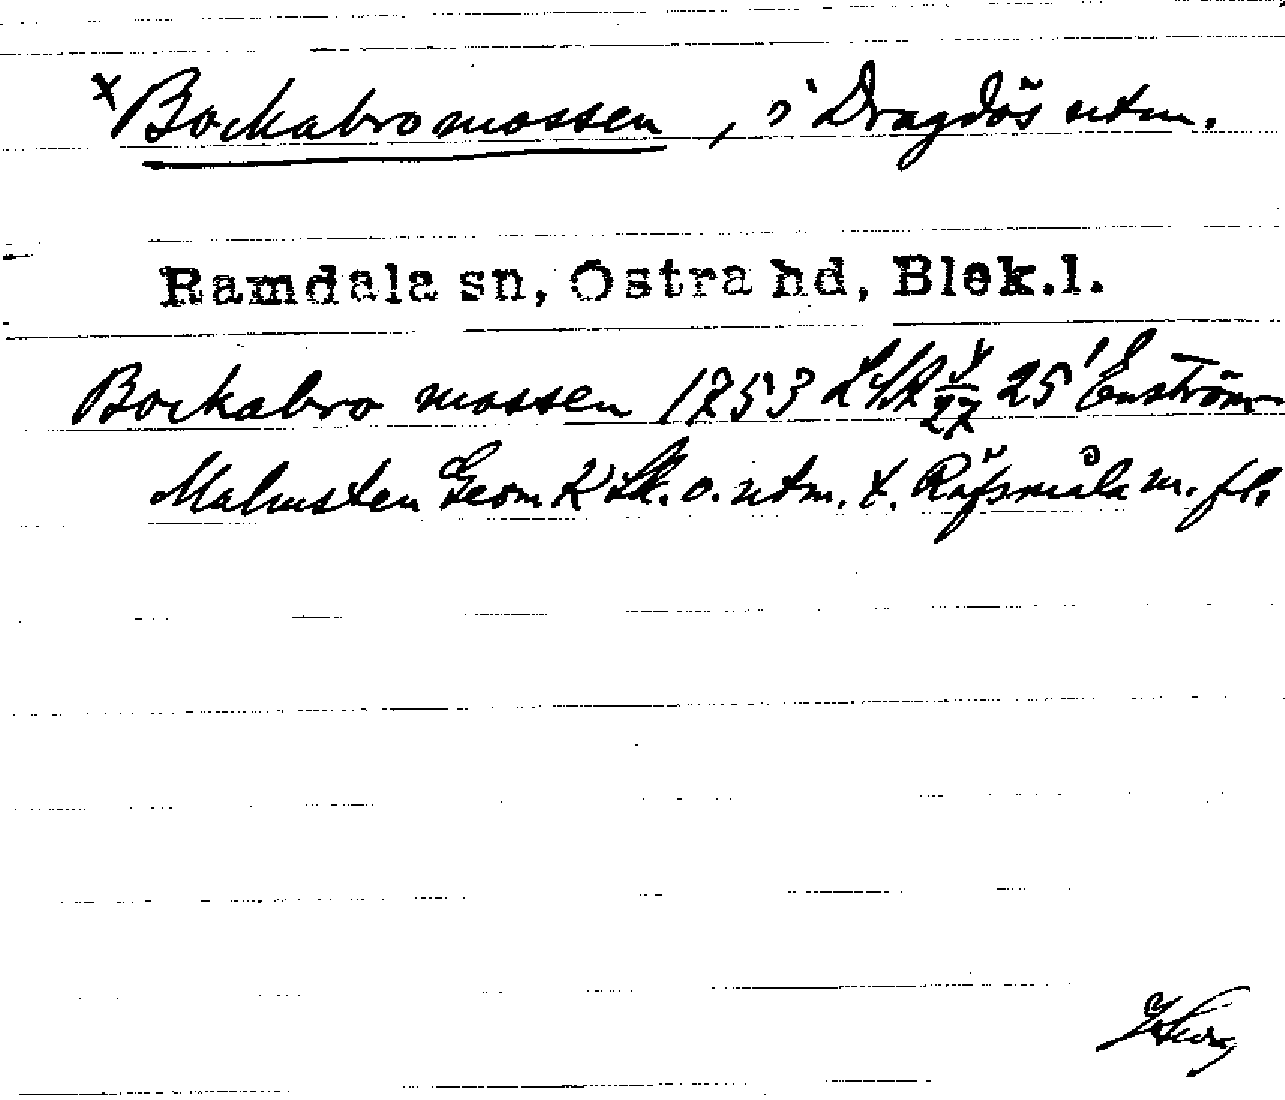 x Bockabromossen, i Dragdös utm.
Ramdala sn, Östra hd, Blek.l.
Bockabro mossen 1753 25 Enström
Malmsten Geom. K Sk. o. utm. t. Räfsmåla m. fl.